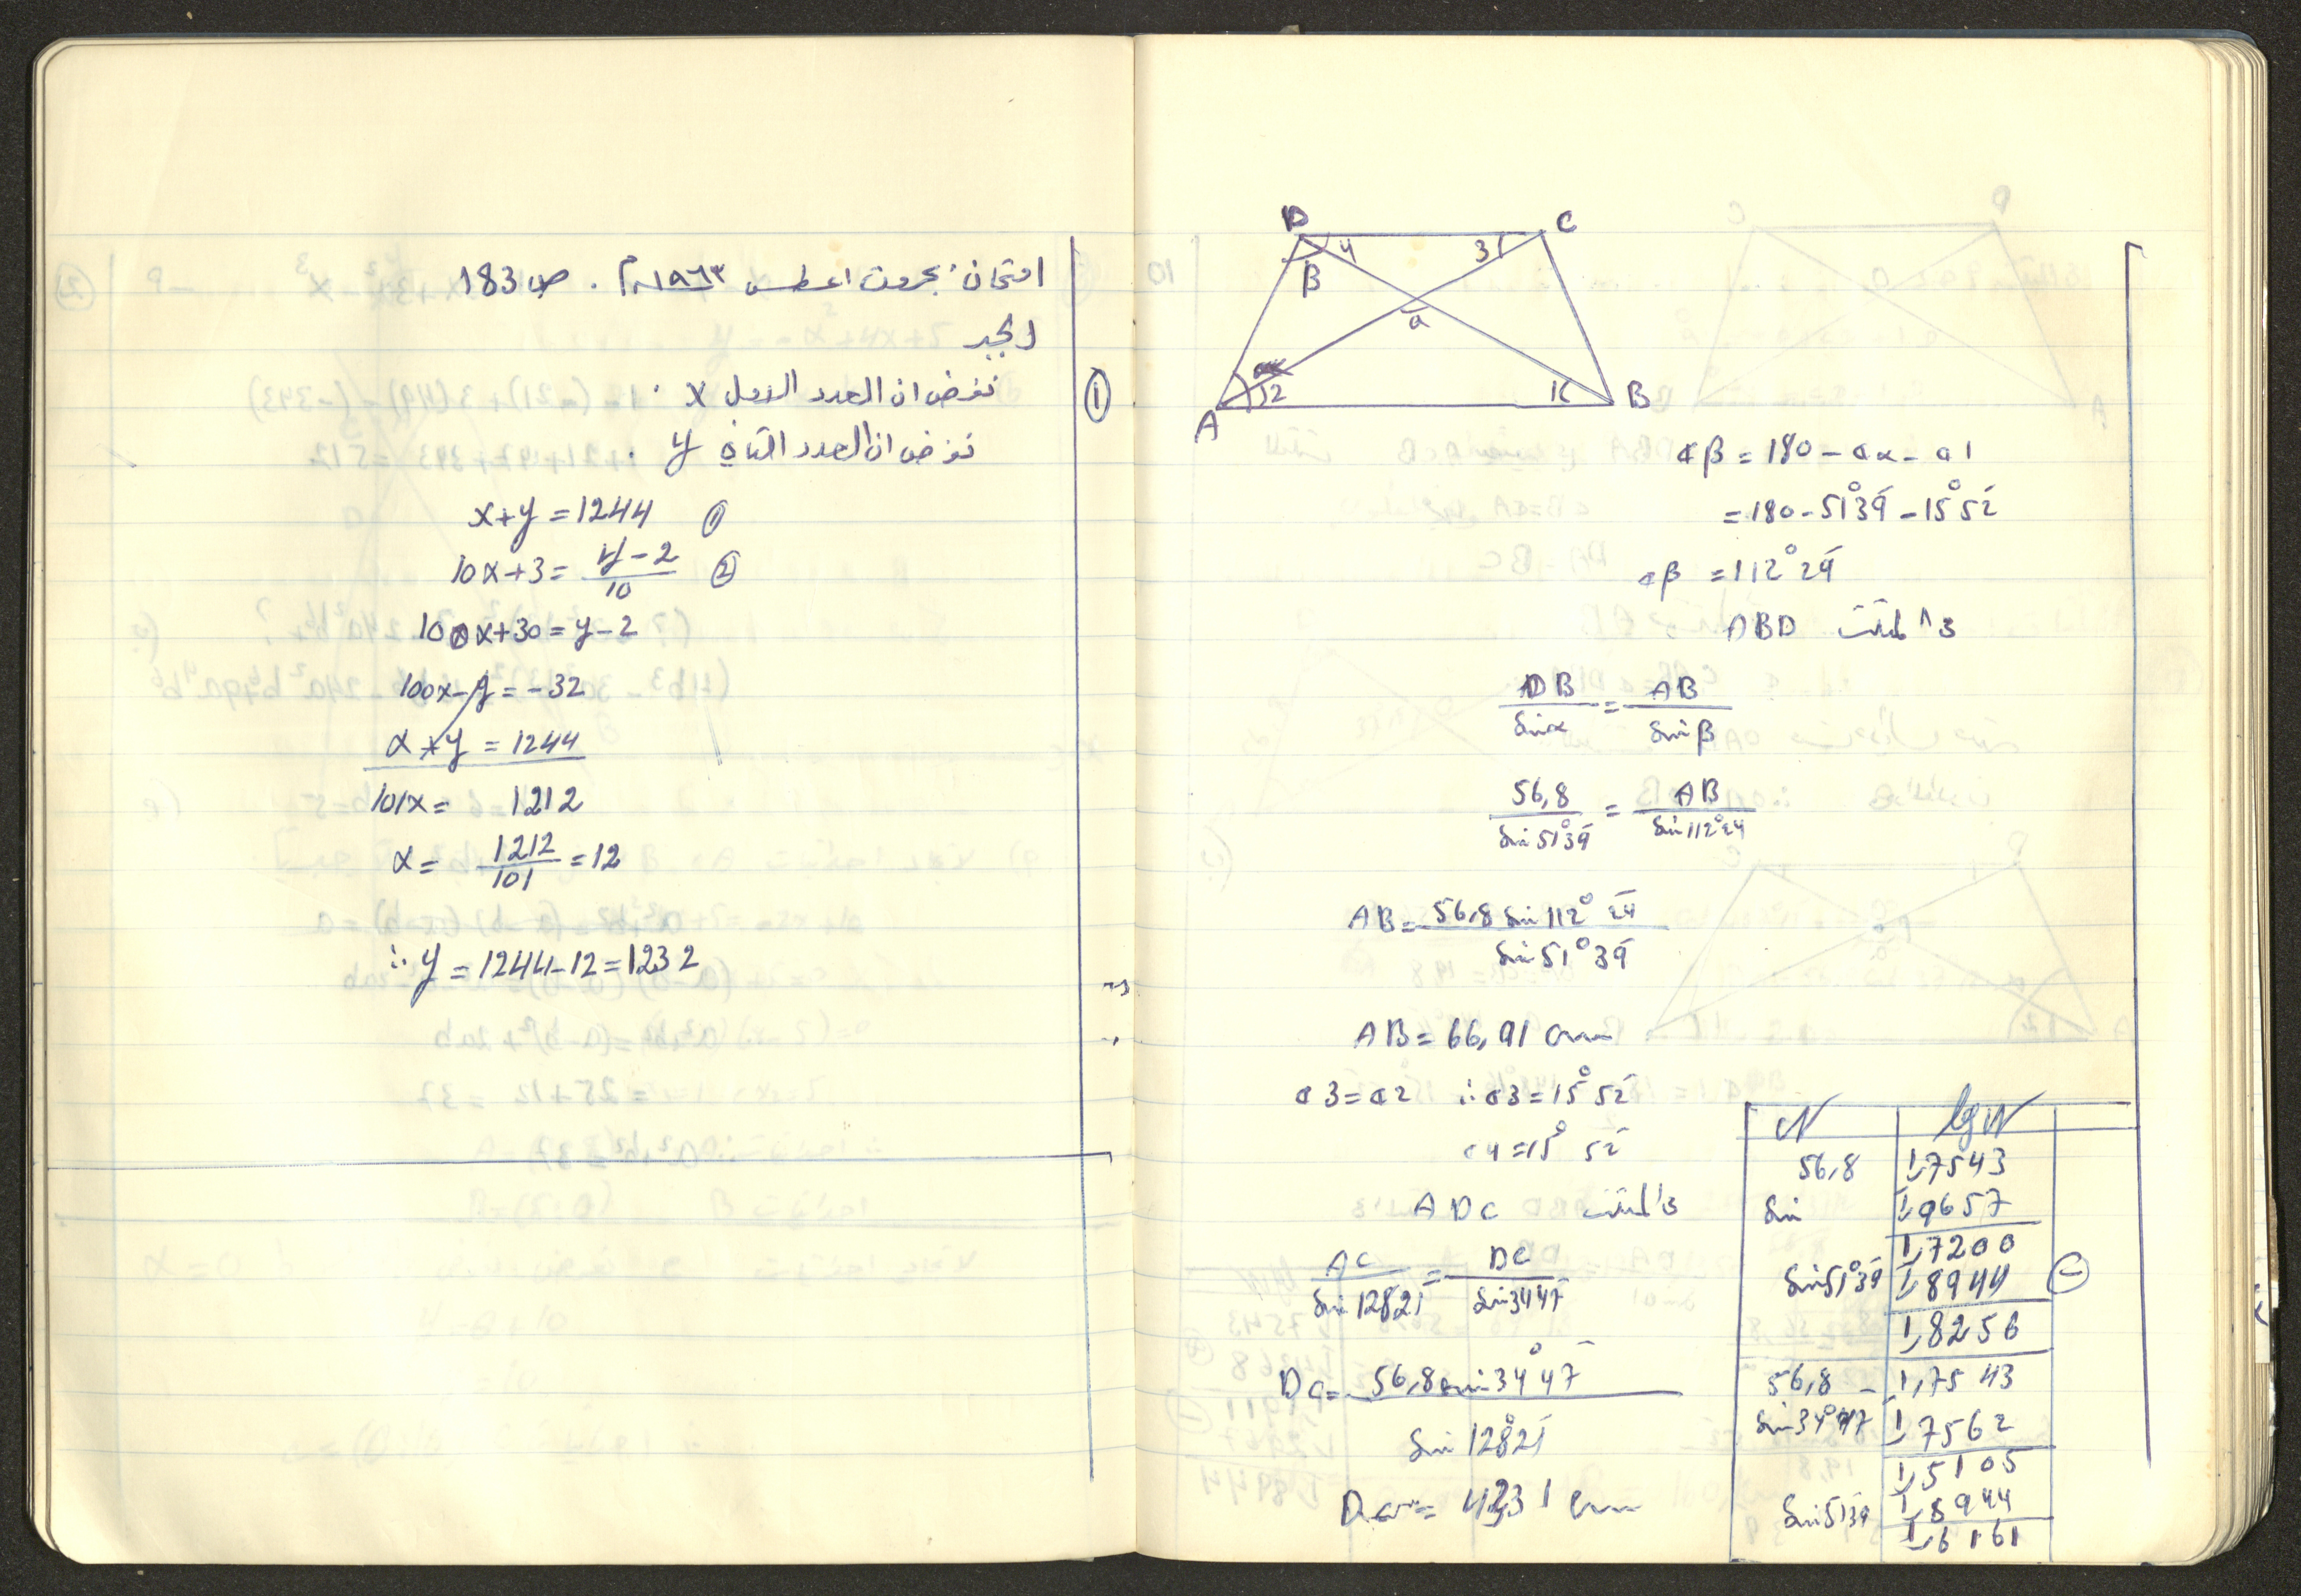 امتحان بجروت اغسطس ١٩٦٣م . ص 183
الجبر
① نفرض ان العدد الاول x .
نفرض ان العدد الثاني y .
x+y = 1244 ①
10x+3 = \frac{y-2}{10} ②
100x+30 = y-2
100x-y = -32
x+y = 1244
101x = 1212
x = \frac{1212}{101} = 12
∴ y = 1244-12 = 1232
D 4 3 C
β
a
A 2 1 B
∢β = 180 - ∢α - ∢1
= 180 - 51°39' - 15°52'
∢β = 112°29'
ABD
\frac{DB}{Sin α} = \frac{AB}{Sin β}
\frac{56,8}{Sin 51°39'} = \frac{AB}{Sin 112°29'}
AB = \frac{56,8 Sin 112° 29'}{Sin 51°39'}
AB = 66,91 cm
∢3 = ∢2 ∴ ∢3 = 15°52'
∢4 = 15° 52'
ADC
\frac{AC}{Sin 12821'} = \frac{DC}{Sin 3447'}
DC = \frac{56,8 Sin 34°47'}{Sin 128°21'}
DC = 41,31 cm
N lg N
56,8 1,7543
Sin 1,9657
1,7200
Sin 51°39' 1,8944 (-)
1,8256
56,8 - 1,7543
Sin 34°47' 1,7562
1,5105
Sin 5139' 1,8944
1,6161